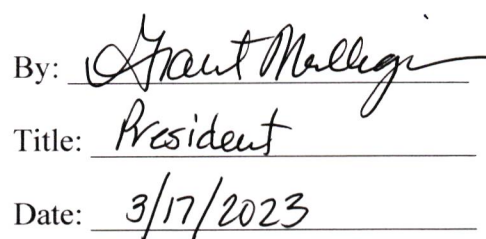 By: Grant
Title: President
Date: 3/17/2023